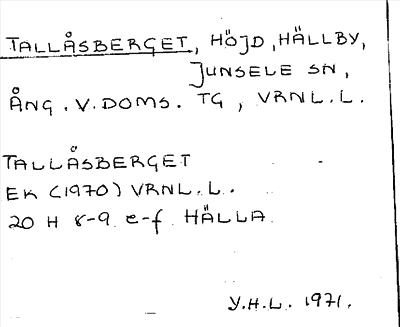 TALLÅSBERGET, HÖJD, HÄLLBY,
JUNSELE SN,
ÅNG. V. DOMS. TG, VRNL.L.
TALLÅSBERGET
EK (1970) VRNL.L.
20 H 8-9 e-f HÄLLA
Y.H.L. 1971.